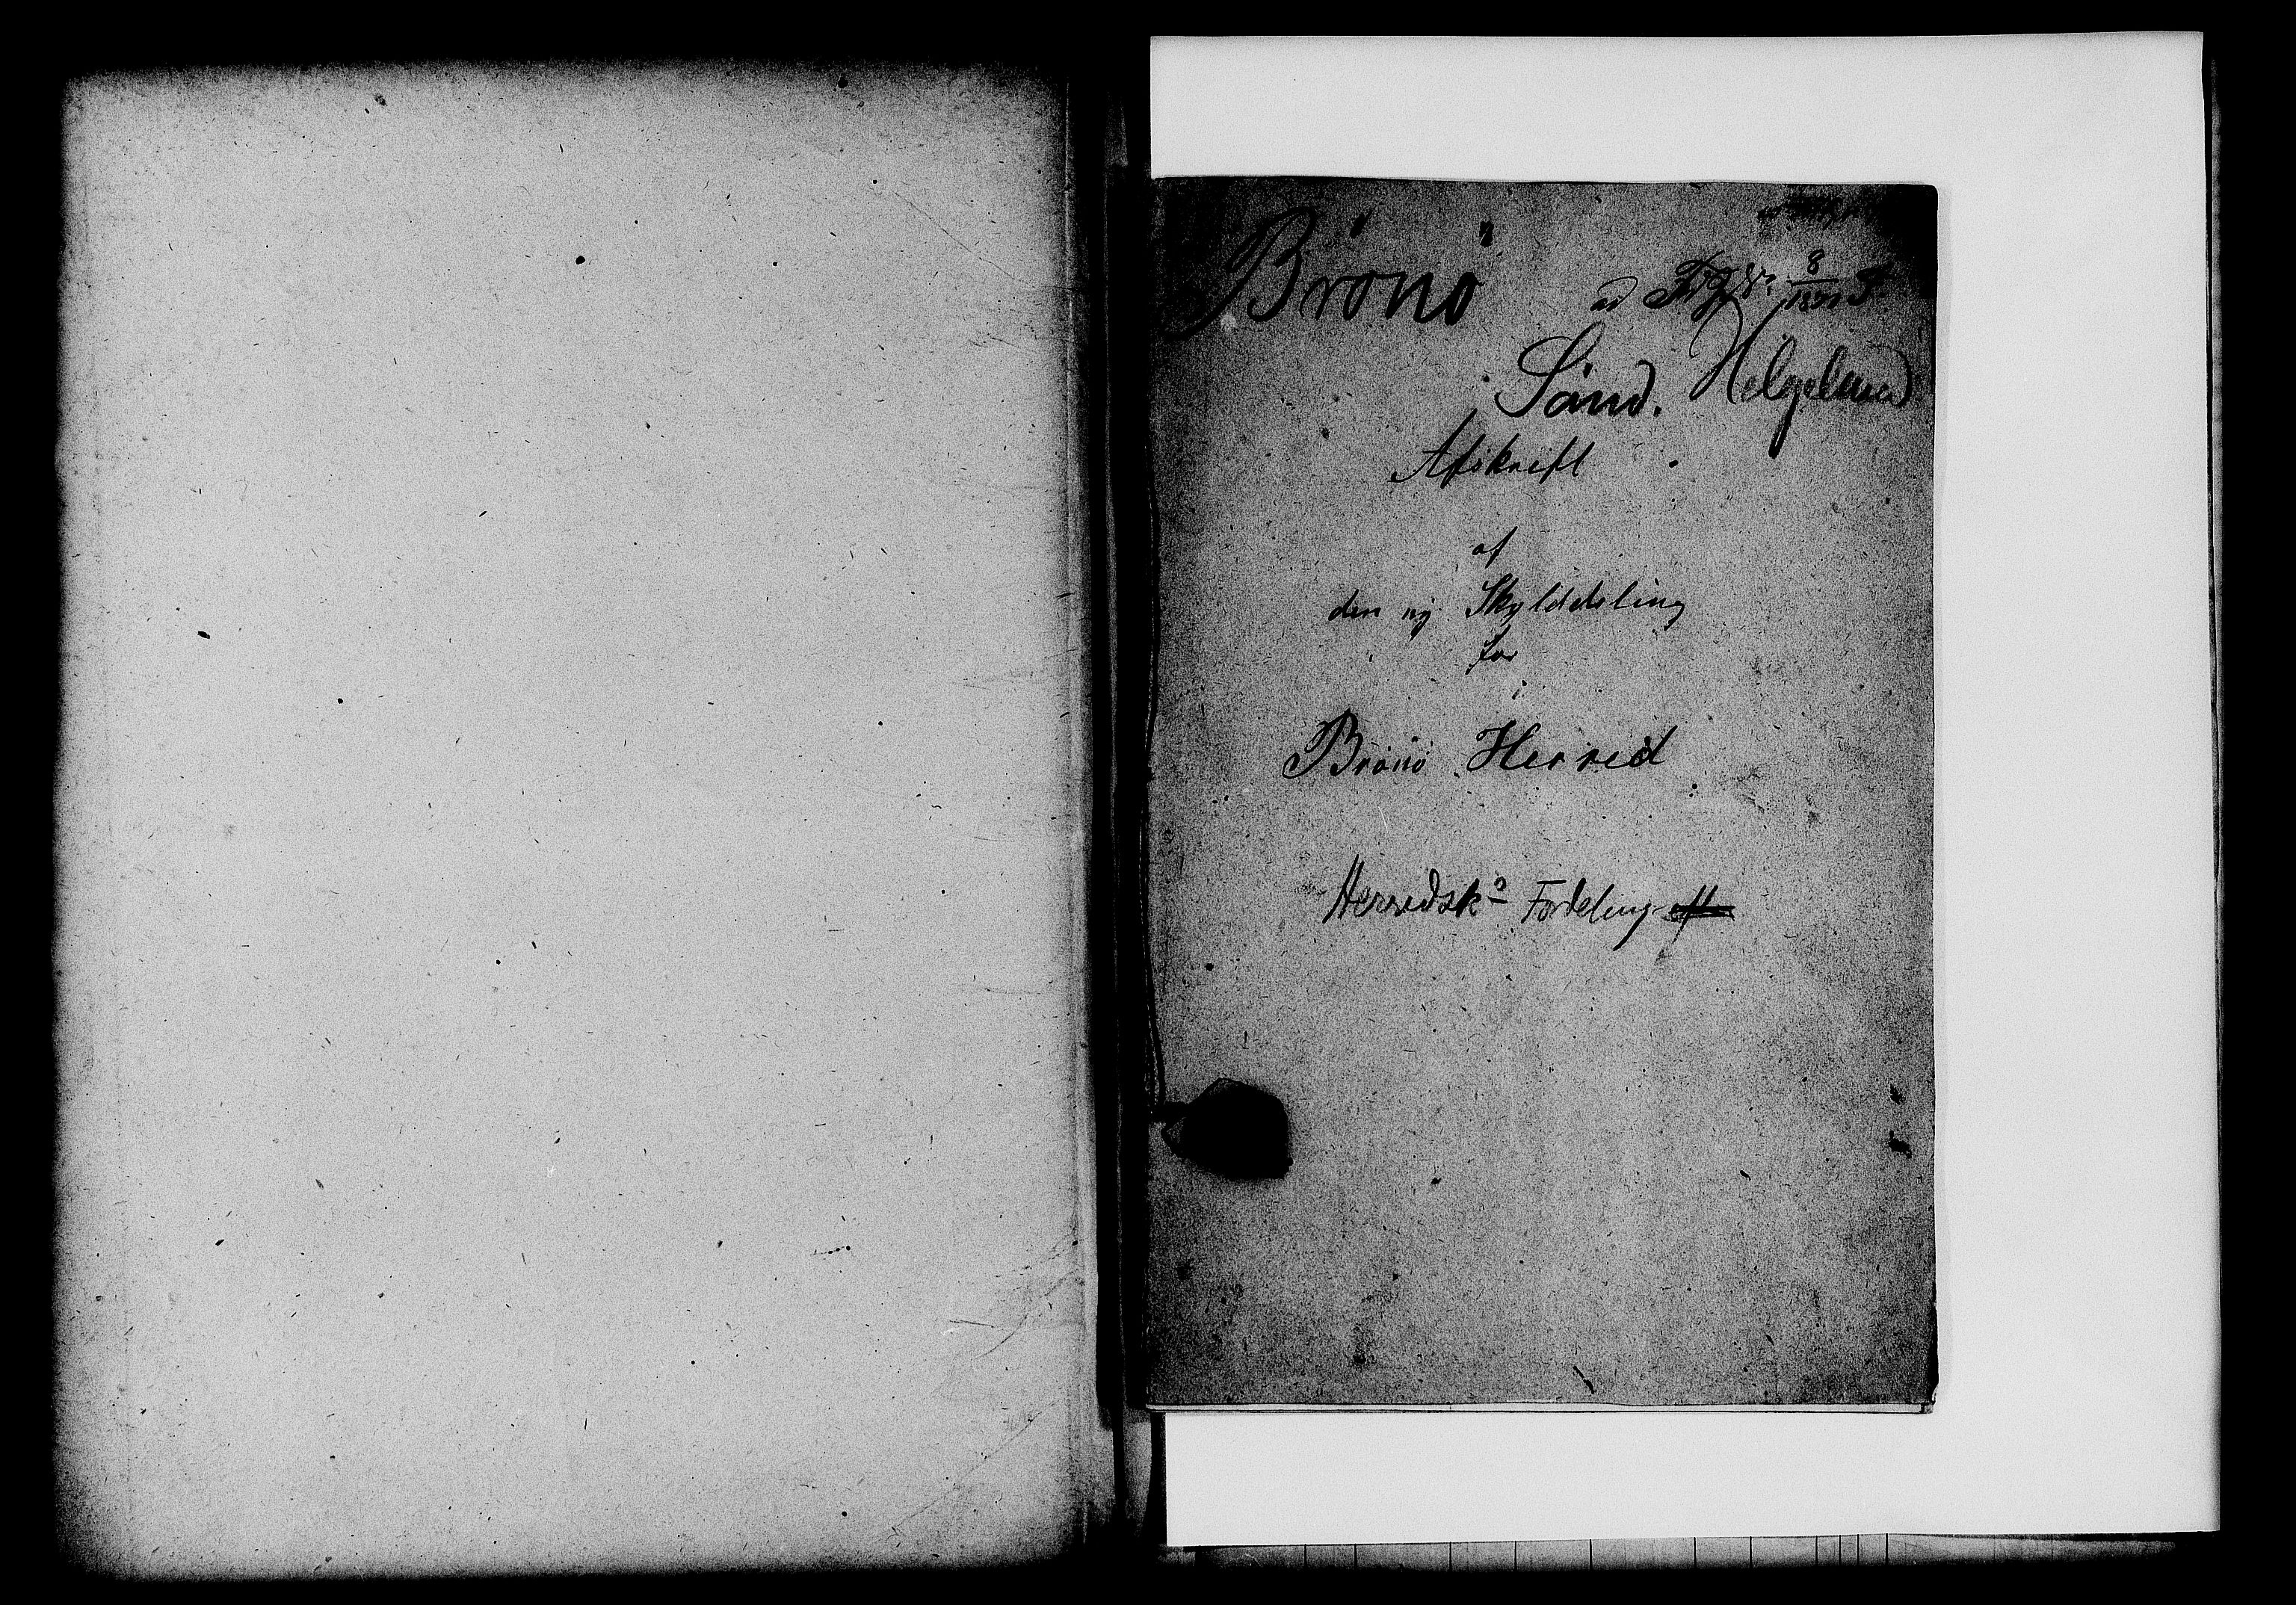 Brönö
ad
Sönd. Helgeland
Afskrift
af
den ny Skylddeling
for
Brönö Herred
Herredsk⁠s Fordeling